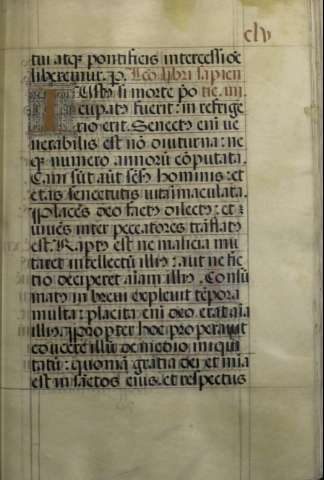 clv
tui atq pontificis intercessióe
liberemur. P. Lco libri sapien
Iustus si morte pò tie. iiij.
cupat9 fuerit: in refrige
rio erit. Senect9 eni ue
nerabilis est nō diuturna: ne
q̄ numero annorū cōputata.
Cani sūt aūt sēs9 hominis: et
etas senectutis uita īmaculata.
Placēs deo fact9 dilect9: et
uiuēs inter peccatores trāslat9
est. Rapt9 est ne malicia mu
taret intellectū illi9: aut ne fic
tio deciperet aīam illi9. Consū
mat9 in breui expleuit tēpora
multa: placita eni deo erat aīa
illi9. Propter hoc properauit
educere illū de medio iniqui
tatū: quoniā gratia dei et mīa
est in sāctos eius. et respectus